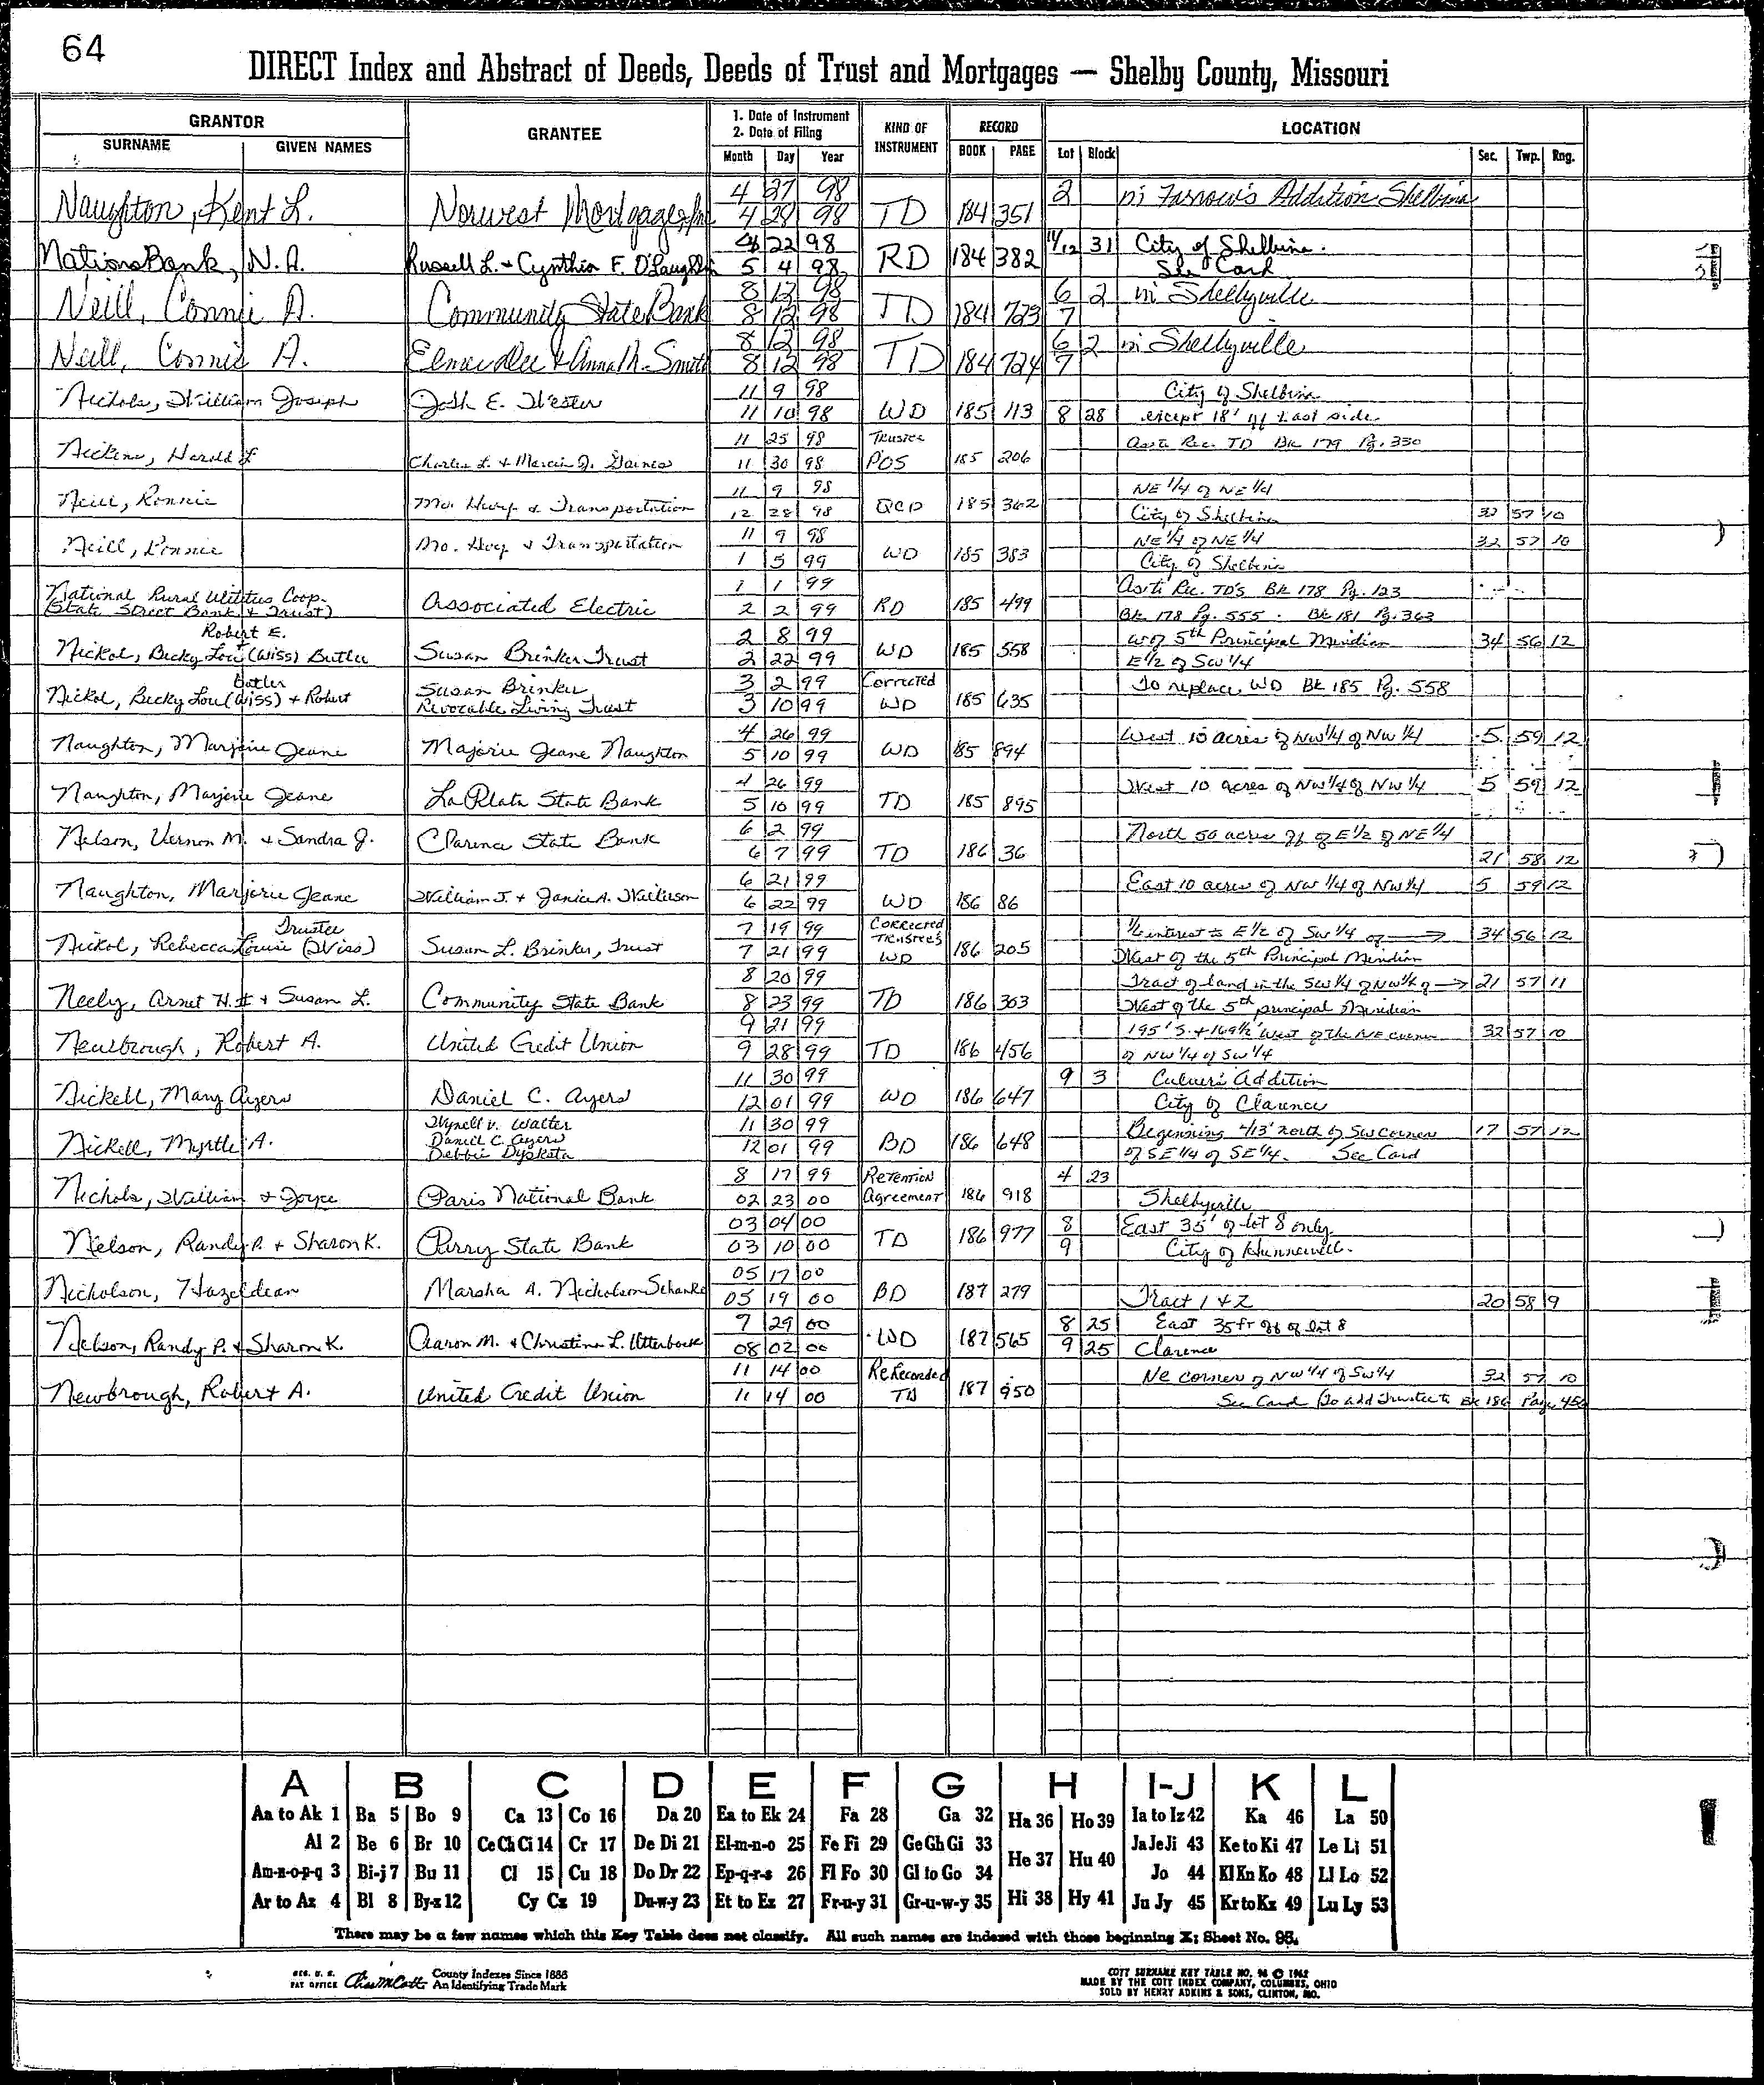 64
DIRECT Index and Abstract of Deeds, Deeds of Trust and Mortgages — Shelby County, Missouri
GRANTOR
SURNAME GIVEN NAMES
GRANTEE
1. Date of Instrument
2. Date of Filing
Month Day Year
KIND OF INSTRUMENT
RECORD
BOOK PAGE
LOCATION
Lot Block Sec. Twp. Rng.
4 27 98 2 in Farrow's Addition Shelbina
Naughton, Kent L. Norwest Mortgage, Inc 4 28 98 TD 184 351
4 22 98 11/12 31 City of Shelbina.
NationsBank, N.A. Russell L. + Cynthia F. O'Laughlin 5 4 98 RD 184 382 See Card
8 12 98 6 2 in Shelbyville
Neill, Connie A. Community State Bank 8 12 98 TD 184 723 7
8 12 98 6 2 in Shelbyville
Neill, Connie A. Elmer Lee & Anna M. Smith 8 12 98 TD 184 724 7
11 9 98 City of Shelbina
Nichols, William Joseph E. Hester 11 10 98 WD 185 113 8 28 except 18' off East side
11 25 98 Trustee Rec. TD Bk 179 Pg. 330
Harold L Charles L. & Marcia J. Gaines 11 30 98 POS 185 206
11 9 98 NE 1/4 of NE 1/4
Neill, Ronnie Mo. Hwy & Transportation 12 28 98 QCD 185 362 City of Shelbina 32 57 10
11 9 98 NE 1/4 of NE 1/4 32 57 10
Neill, Ronnie Mo. Hwy & Transportation 1 5 99 WD 185 383 City of Shelbina
National Rural Utilities Coop. 1 1 99 As to Rec. TD's Bk 178 Pg. 123
(State Street Bank & Trust) Associated Electric 2 2 99 RD 185 499 Bk 178 Pg. 555. Bk 181 Pg. 363
Robert E. 2 8 99 W of 5th Principal Meridian 34 56 12
Nickol, Becky Lou + (Wiss) Butler Susan Brinker Trust 2 22 99 WD 185 558 E 1/2 of SW 1/4
Butler Susan Brinker 3 2 99 Corrected To replace WD Bk 185 Pg. 558
Nickol, Becky Lou (Wiss) + Robert Revocable Living Trust 3 10 99 WD 185 635
4 26 99 West 10 acres of NW 1/4 of NW 1/4 5 59 12
Naughton, Marjorie Jeane Majorie Jeane Naughton 5 10 99 WD 185 894
4 26 99 West 10 acres of NW 1/4 of NW 1/4 5 59 12
Naughton, Marjorie Jeane La Plata State Bank 5 10 99 TD 185 895
6 2 99 North 50 acres off of E 1/2 of NE 1/4
Nelson, Vernon M. + Sandra J. Clarence State Bank 6 7 99 TD 186 36 21 58 12
6 21 99 East 10 acres of NW 1/4 of NW 1/4 5 59 12
Naughton, Marjorie Jeane William J. + Janice A. 6 22 99 WD 186 86
Trustee 7 19 99 Corrected Trustee's 1/6 interest to E 1/2 of SW 1/4 of → 34 56 12
Nickol, Rebecca Louise (Wiss) Susan L. Brinker, Trust 7 21 99 WD 186 205 West of the 5th Principal Meridian
8 20 99 Tract of land in the SW 1/4 of NW 1/4 of → 21 57 11
Neely, Arnet H. II + Susan L. Community State Bank 8 23 99 TD 186 303 West of the 5th principal Meridian
9 21 99 195' S. + 169 1/2' West of the NE corner 32 57 10
Newbrough, Robert A. United Credit Union 9 28 99 TD 186 456 of NW 1/4 of SW 1/4
11 30 99 9 3 Culver's Addition
Nickell, Mary Ayers Daniel C. Ayers 12 01 99 WD 186 647 City of Clarence
Wynell V. Walter 11 30 99 Beginning 413' North of SW corner 17 57 12
Nickell, Myrtle A. Daniel C. Ayers 12 01 99 BD 186 648 of SE 1/4 of SE 1/4. See Card
Debbie Dyksta
8 17 99 Retention 4 23
Nichols, William & Joyce Paris National Bank 02 23 00 Agreement 186 918 Shelbyville
03 04 00 8 East 35' of lot 8 only
Nelson, Randy P. + Sharon K. Perry State Bank 03 10 00 TD 186 977 9 City of Hunnewell.
05 17 00
Nicholson, Hazeldean Marsha A. Nicholson Schanke 05 19 00 BD 187 279 Tract 1 & 2 20 58 9
7 29 00 8 25 East 35 ft off of lot 8
Nelson, Randy P. + Sharon K. Aaron M. + Christina L. Utterback 08 02 00 WD 187 565 9 25 Clarence
11 14 00 ReRecorded NE corner of NW 1/4 of SW 1/4 32 57 10
Newbrough, Robert A. United Credit Union 11 14 00 TD 187 950 See Card (To add Trustee to Bk 186 Page 456
A B C D E F G H I-J K L
Aa to Ak 1 Ba 5 Bo 9 Ca 13 Co 16 Da 20 Ea to Ek 24 Fa 28 Ga 32 Ha 36 Ho 39 Ia to Iz 42 Ka 46 La 50
Al 2 Be 6 Br 10 Ce Ch Ci 14 Cr 17 De Di 21 El-m-n-o 25 Fe Fi 29 Ge Gh Gi 33 He 37 Hu 40 Ja Je Ji 43 Ke to Ki 47 Le Li 51
Am-n-o-p-q 3 Bi-j 7 Bu 11 Cl 15 Cu 18 Do Dr 22 Ep-q-r-s 26 Fl Fo 30 Gl to Go 34 Jo 44 Kl Kn Ko 48 Ll Lo 52
Ar to Az 4 Bl 8 By-z 12 Cy Cz 19 Du-w-y 23 Et to Ez 27 Fr-u-y 31 Gr-u-w-y 35 Hi 38 Hy 41 Ju Jy 45 Kr to Kz 49 Lu Ly 53
There may be a few names which this Key Table does not classify. All such names are indexed with those beginning X; Sheet No. 96.
REG. U. S. PAT OFFICE County Indexes Since 1888
An Identifying Trade Mark
COTT SURNAME KEY TABLE NO. 96 © 1962
MADE BY THE COTT INDEX COMPANY, COLUMBUS, OHIO
SOLD BY HENRY ADKINS & SONS, CLINTON, MO.